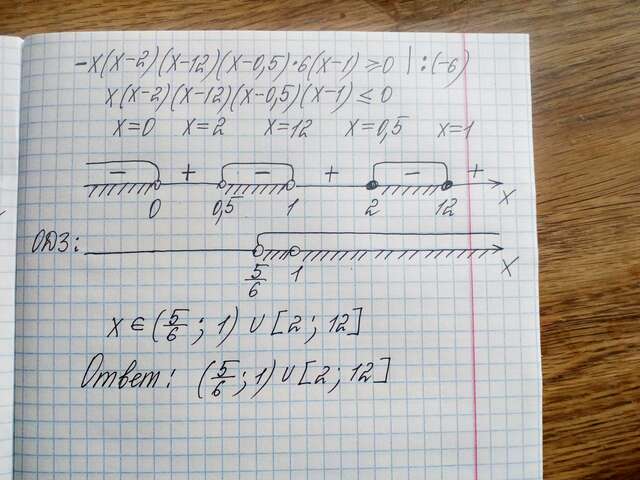 -x(x-2)(x-12)(x-0,5)·6(x-1)≥0 | :(-6)
x(x-2)(x-12)(x-0,5)(x-1)≤0
x=0 x=2 x=12 x=0,5 x=1
- + - + - +
0 0,5 1 2 12 x
ОДЗ:
5/6 1 x
x∈(5/6; 1)∪[2; 12]
Ответ: (5/6; 1)∪[2; 12]